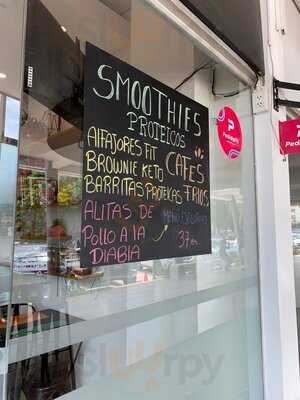 SMOOTHIES
PROTEICOS
ALFAJORES FIT
BROWNIE KETO
BARRITAS PROTEICAS
CAFES
FRIOS
ALITAS DE
POLLO A LA
DIABLA
MENÚ
37
Sluurpy